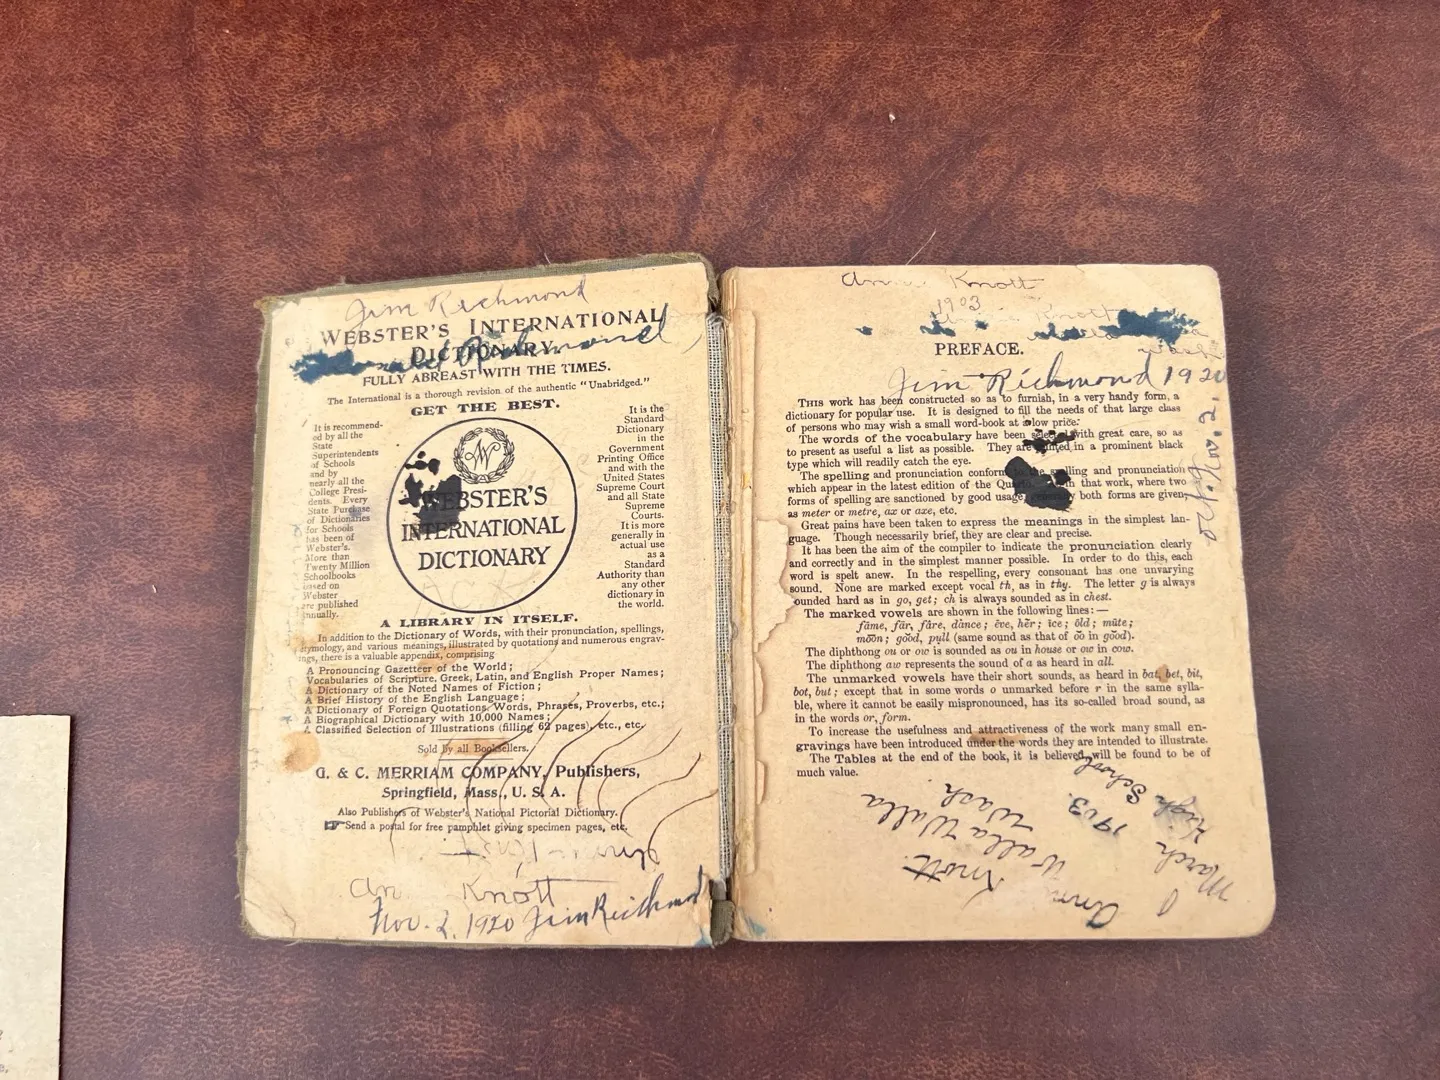 Jim Richmond
WEBSTER'S INTERNATIONAL
DICTIONARY
Richmond
FULLY ABREAST WITH THE TIMES.
The International is a thorough revision of the authentic "Unabridged."
GET THE BEST.
It is recommend-
ed by all the
State
Superintendents
of Schools
and by
nearly all the
College Presi-
dents. Every
State Purchase
of Dictionaries
for Schools
has been of
Webster's.
More than
Twenty Million
Schoolbooks
based on
Webster
are published
annually.
W
WEBSTER'S
INTERNATIONAL
DICTIONARY
It is the
Standard
Dictionary
in the
Government
Printing Office
and with the
United States
Supreme Court
and all State
Supreme
Courts.
It is more
generally in
actual use
as a
Standard
Authority than
any other
dictionary in
the world.
A LIBRARY IN ITSELF.
In addition to the Dictionary of Words, with their pronunciation, spellings,
etymology, and various meanings, illustrated by quotations and numerous engrav-
ings, there is a valuable appendix, comprising
A Pronouncing Gazetteer of the World;
Vocabularies of Scripture, Greek, Latin, and English Proper Names;
A Dictionary of the Noted Names of Fiction;
A Brief History of the English Language;
A Dictionary of Foreign Quotations, Words, Phrases, Proverbs, etc.;
A Biographical Dictionary with 10,000 Names;
A Classified Selection of Illustrations (filling 62 pages), etc., etc.
Sold by all Booksellers.
G. & C. MERRIAM COMPANY, Publishers,
Springfield, Mass., U. S. A.
Also Publishers of Webster's National Pictorial Dictionary.
Send a postal for free pamphlet giving specimen pages, etc.
Knott
Nov. 2, 1920 Jim Richmond
Knott
1903
Knott
PREFACE.
Jim Richmond 1920
Nov. 2,
THIS work has been constructed so as to furnish, in a very handy form, a
dictionary for popular use. It is designed to fill the needs of that large class
of persons who may wish a small word-book at a low price.
The words of the vocabulary have been selected with great care, so as
to present as useful a list as possible. They are printed in a prominent black
type which will readily catch the eye.
The spelling and pronunciation conform to the spelling and pronunciation
which appear in the latest edition of the Quarto. In that work, where two
forms of spelling are sanctioned by good usage, generally both forms are given,
as meter or metre, ax or axe, etc.
Great pains have been taken to express the meanings in the simplest lan-
guage. Though necessarily brief, they are clear and precise.
It has been the aim of the compiler to indicate the pronunciation clearly
and correctly and in the simplest manner possible. In order to do this, each
word is spelt anew. In the respelling, every consonant has one unvarying
sound. None are marked except vocal th, as in thy. The letter g is always
sounded hard as in go, get; ch is always sounded as in chest.
The marked vowels are shown in the following lines: —
fāme, fär, fâre, dȧnce; ēve, hẽr; īce; ōld; mūte;
mo͞on; go͝od, pu̇ll (same sound as that of o͝o in go͝od).
The diphthong ou or ow is sounded as ou in house or ow in cow.
The diphthong aw represents the sound of a as heard in all.
The unmarked vowels have their short sounds, as heard in bat, bet, bit,
bot, but; except that in some words o unmarked before r in the same sylla-
ble, where it cannot be easily mispronounced, has its so-called broad sound, as
in the words or, form.
To increase the usefulness and attractiveness of the work many small en-
gravings have been introduced under the words they are intended to illustrate.
The Tables at the end of the book, it is believed, will be found to be of
much value.
Knott
Walla Walla
Wash
March 1903.
High School